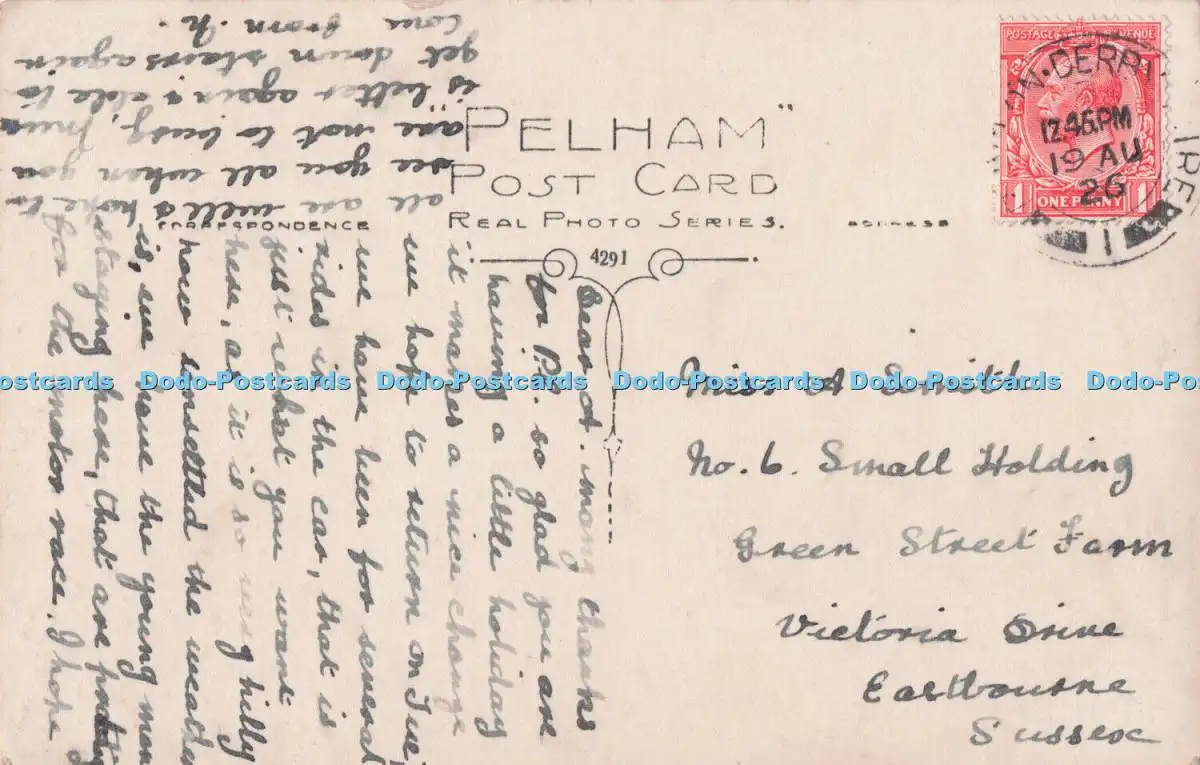 "PELHAM"
POST CARD
REAL PHOTO SERIES.
CORRESPONDENCE
ADDRESS
4291
POSTAGE REVENUE
ONE PENNY
1 1
12.45PM
19 AU
26
1
Miss A Smith
No. 6. Small Holding
Green Street Farm
Victoria Drive
Eastbourne
Sussex
Dear A. many thanks
for P.C. so glad you are
having a little holiday
it makes a nice change
we hope to return on Tue,
we have been for several
rides in the car, that is
just what you want
here, as it is so very hilly
how unsettled the weather
is, we have the young men
staging here, that are
for the motor race. I hope
all are well & hope to
see you all when you
are not to busy,
is better again & able to
get down stairs again
from N.
Dodo-Postcards Dodo-Postcards Dodo-Postcards Dodo-Postcards Dodo-Postcards Dodo-Postcards